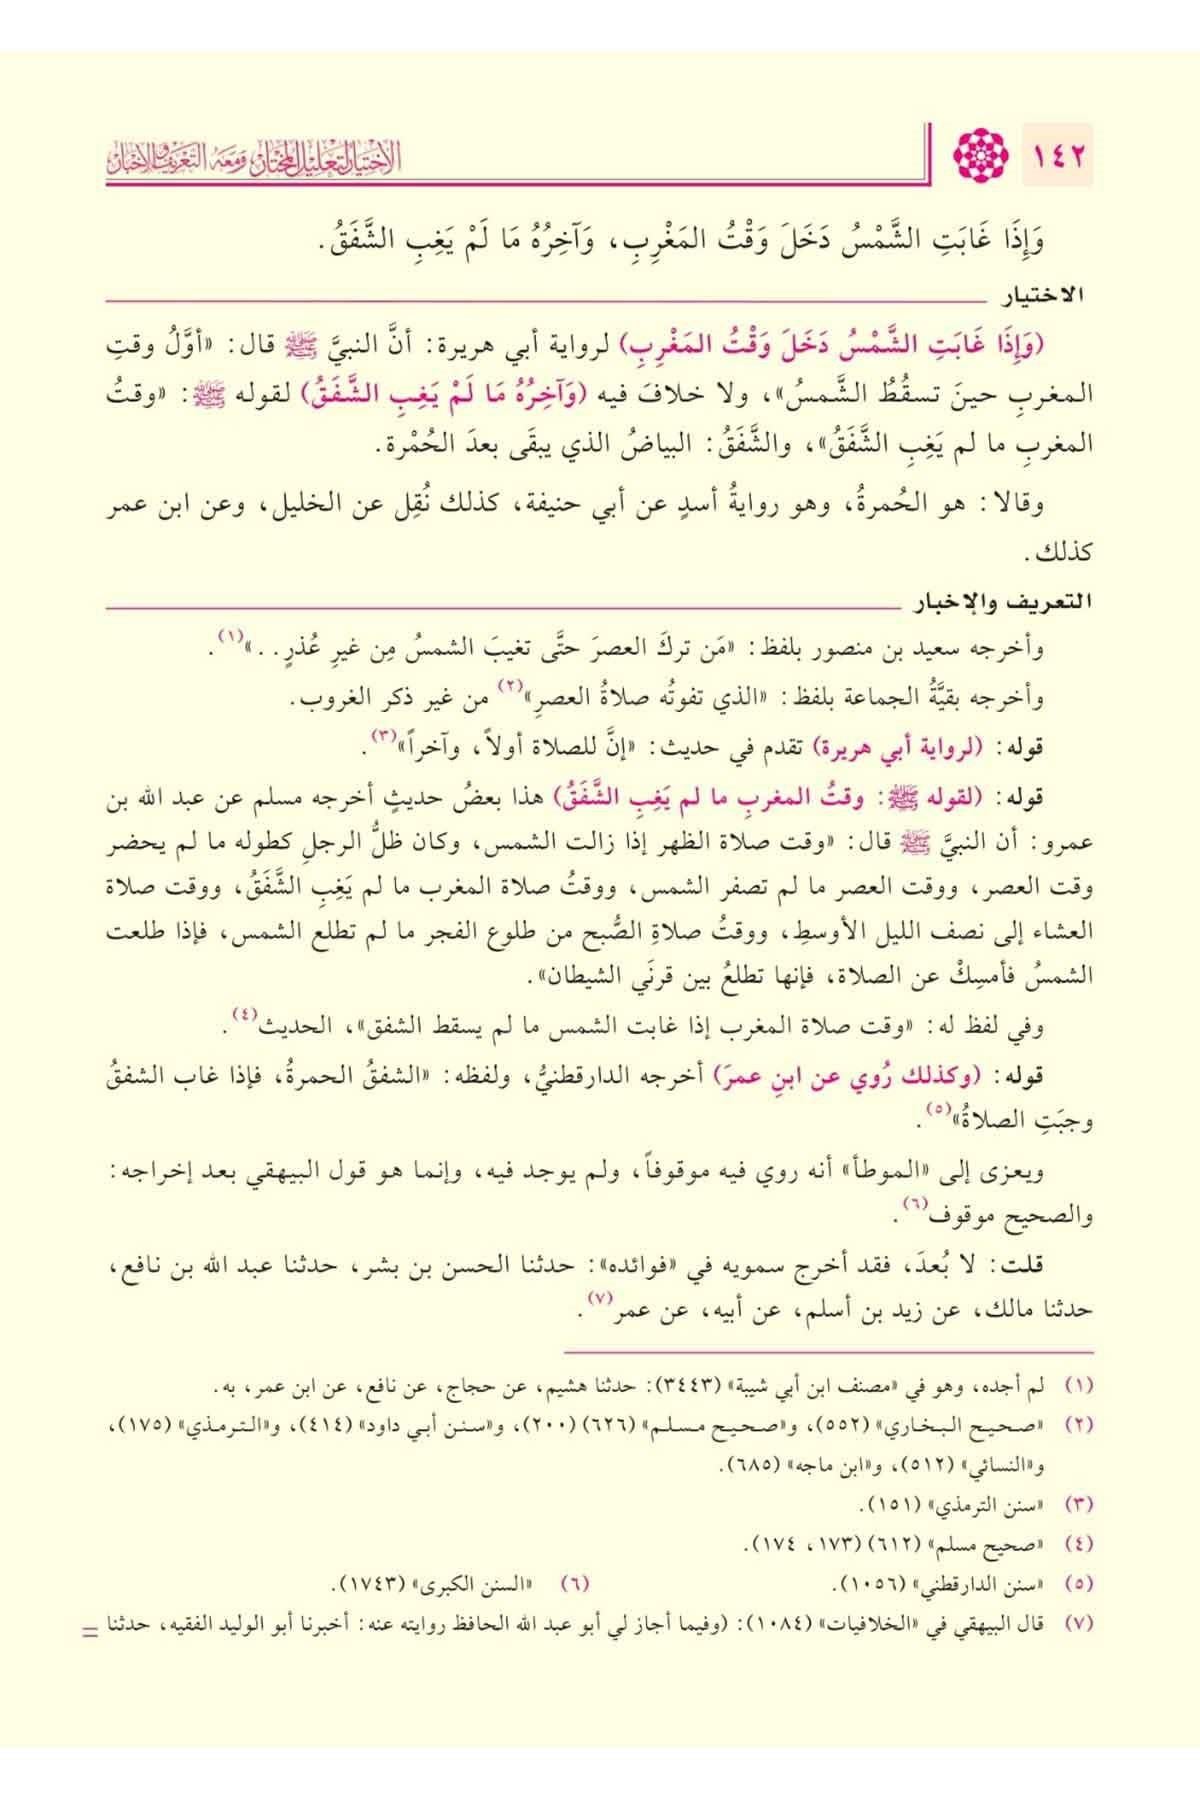 ١٤٢
الاختيار لتعليل المختار ومعه التعريف والإخبار
وَإِذَا غَابَتِ الشَّمْسُ دَخَلَ وَقْتُ المَغْرِبِ، وَآخِرُهُ مَا لَمْ يَغِبِ الشَّفَقُ.
الاختيار
(وَإِذَا غَابَتِ الشَّمْسُ دَخَلَ وَقْتُ المَغْرِبِ) لرواية أبي هريرة: أنَّ النبيَّ ﷺ قال: «أوَّلُ وقتِ
المغربِ حينَ تسقُطُ الشَّمسُ»، ولا خلافَ فيه (وَآخِرُهُ مَا لَمْ يَغِبِ الشَّفَقُ) لقوله ﷺ: «وقتُ
المغربِ ما لم يَغِبِ الشَّفَقُ»، والشَّفَقُ: البياضُ الذي يبقَى بعدَ الحُمْرة.
وقالا: هو الحُمرةُ، وهو روايةُ أسدٍ عن أبي حنيفة، كذلك نُقِل عن الخليل، وعن ابن عمر
كذلك.
التعريف والإخبار
وأخرجه سعيد بن منصور بلفظ: «مَن تركَ العصرَ حتَّى تغيبَ الشمسُ مِن غيرِ عُذرٍ..»(١).
وأخرجه بقيَّةُ الجماعة بلفظ: «الذي تفوتُه صلاةُ العصرِ»(٢) من غير ذكر الغروب.
قوله: (لرواية أبي هريرة) تقدم في حديث: «إنَّ للصلاة أولاً، وآخراً»(٣).
قوله: (لقوله ﷺ: وقتُ المغربِ ما لم يَغِبِ الشَّفَقُ) هذا بعضُ حديثٍ أخرجه مسلم عن عبد الله بن
عمرو: أن النبيَّ ﷺ قال: «وقت صلاة الظهر إذا زالت الشمس، وكان ظلُّ الرجلِ كطوله ما لم يحضر
وقت العصر، ووقت العصر ما لم تصفر الشمس، ووقتُ صلاة المغرب ما لم يَغِبِ الشَّفَقُ، ووقت صلاة
العشاء إلى نصف الليل الأوسطِ، ووقتُ صلاةِ الصُّبح من طلوع الفجر ما لم تطلع الشمس، فإذا طلعت
الشمسُ فأمسِكْ عن الصلاة، فإنها تطلعُ بين قرنَي الشيطان».
وفي لفظ له: «وقت صلاة المغرب إذا غابت الشمس ما لم يسقط الشفق»، الحديث(٤).
قوله: (وكذلك رُوي عن ابنِ عمرَ) أخرجه الدارقطنيُّ، ولفظه: «الشفقُ الحمرةُ، فإذا غاب الشفقُ
وجبَتِ الصلاةُ»(٥).
ويعزى إلى «الموطأ» أنه روي فيه موقوفاً، ولم يوجد فيه، وإنما هو قول البيهقي بعد إخراجه:
والصحيح موقوف(٦).
قلت: لا بُعدَ، فقد أخرج سمويه في «فوائده»: حدثنا الحسن بن بشر، حدثنا عبد الله بن نافع،
حدثنا مالك، عن زيد بن أسلم، عن أبيه، عن عمر(٧).
(١) لم أجده، وهو في «مصنف ابن أبي شيبة» (٣٤٤٣): حدثنا هشيم، عن حجاج، عن نافع، عن ابن عمر، به.
(٢) «صحيح البخاري» (٥٥٢)، و«صحيح مسلم» (٦٢٦) (٢٠٠)، و«سنن أبي داود» (٤١٤)، و«الترمذي» (١٧٥)،
و«النسائي» (٥١٢)، و«ابن ماجه» (٦٨٥).
(٣) «سنن الترمذي» (١٥١).
(٤) «صحيح مسلم» (٦١٢) (١٧٣، ١٧٤).
(٥) «سنن الدارقطني» (١٠٥٦). (٦) «السنن الكبرى» (١٧٤٣).
(٧) قال البيهقي في «الخلافيات» (١٠٨٤): (وفيما أجاز لي أبو عبد الله الحافظ روايته عنه: أخبرنا أبو الوليد الفقيه، حدثنا =